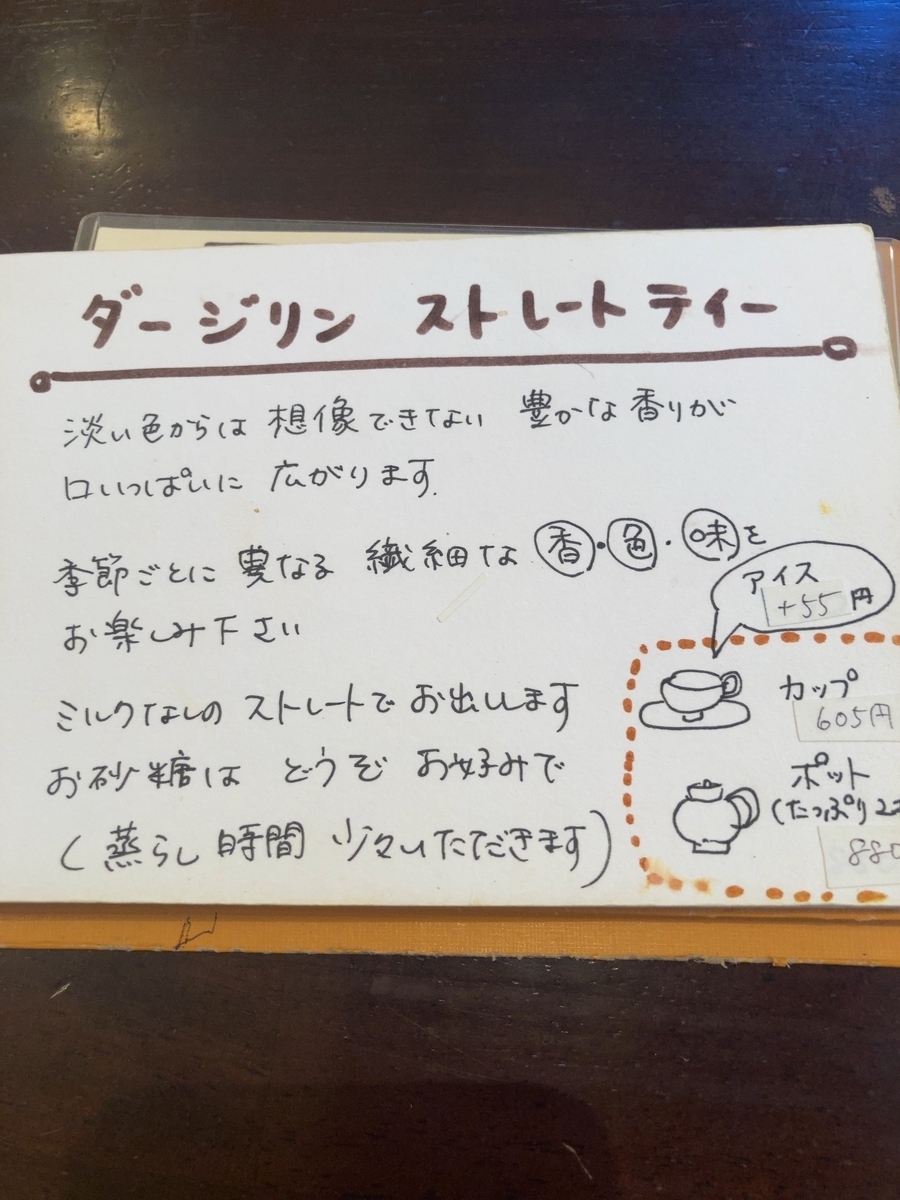 ダージリン ストレートティー
淡い色からは 想像できない 豊かな香りが
口いっぱいに 広がります.
季節ごとに 異なる 繊細な 香・色・味を
お楽しみ下さい
ミルクなしの ストレートで お出しします
お砂糖は どうぞ お好みで
(蒸らし時間 少々いただきます)
アイス
+55円
カップ
605円
ポット
(たっぷり2
880